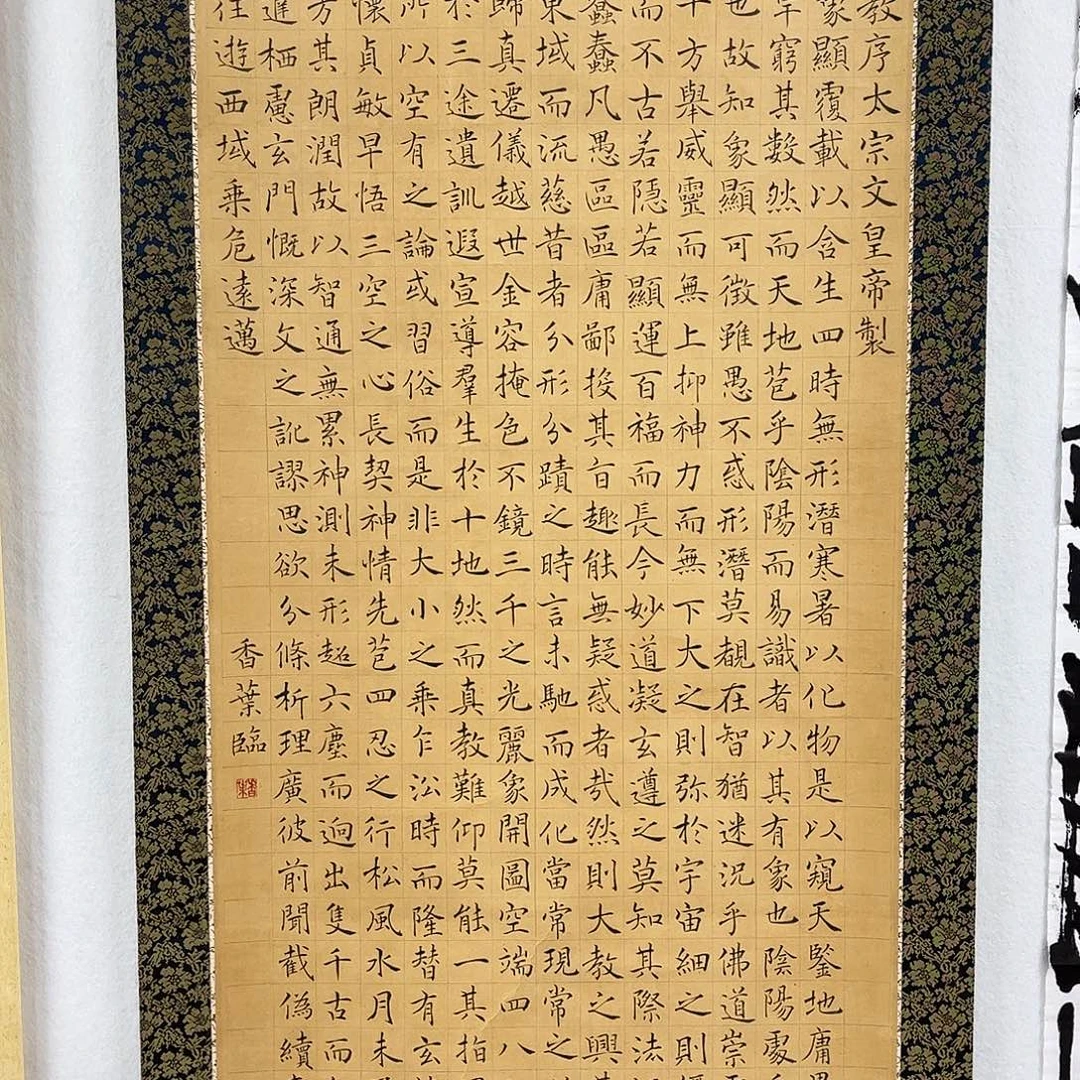 教序太宗文皇帝製
象顯覆載以含生四時無形潛寒暑以化物是以窺天鑒地庸
窮其數然而天地苞乎陰陽而易識者以其有象也陰陽處
也故知象顯可徵雖愚不惑形潛莫覩在智猶迷況乎佛道崇
十方舉威靈而無上抑神力而無下大之則弥於宇宙細之則
而不古若隱若顯運百福而長今妙道凝玄遵之莫知其際法
蠢蠢凡愚區區庸鄙投其旨趣能無疑惑者哉然則大教之興
東域而流慈昔者分形分蹟之時言未馳而成化當常現常之
歸真遷儀越世金容掩色不鏡三千之光麗象開圖空端四八
於三途遺訓遐宣導羣生於十地然而真教難仰莫能一其指
所以空有之論或習俗而是非大小之乘乍沿時而隆替有玄
懷貞敏早悟三空之心長契神情先苞四忍之行松風水月未
方其朗潤故以智通無累神測未形超六塵而迥出隻千古而
進栖慮玄門慨深文之訛謬思欲分條析理廣彼前聞截偽續
往遊西域乘危遠邁
香葉臨